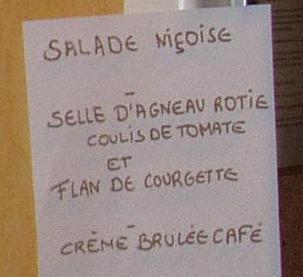 SALADE NIÇOISE
-
SELLE D'AGNEAU ROTIE
COULIS DE TOMATE
ET
FLAN DE COURGETTE
-
CRÈME BRULÉE CAFÉ